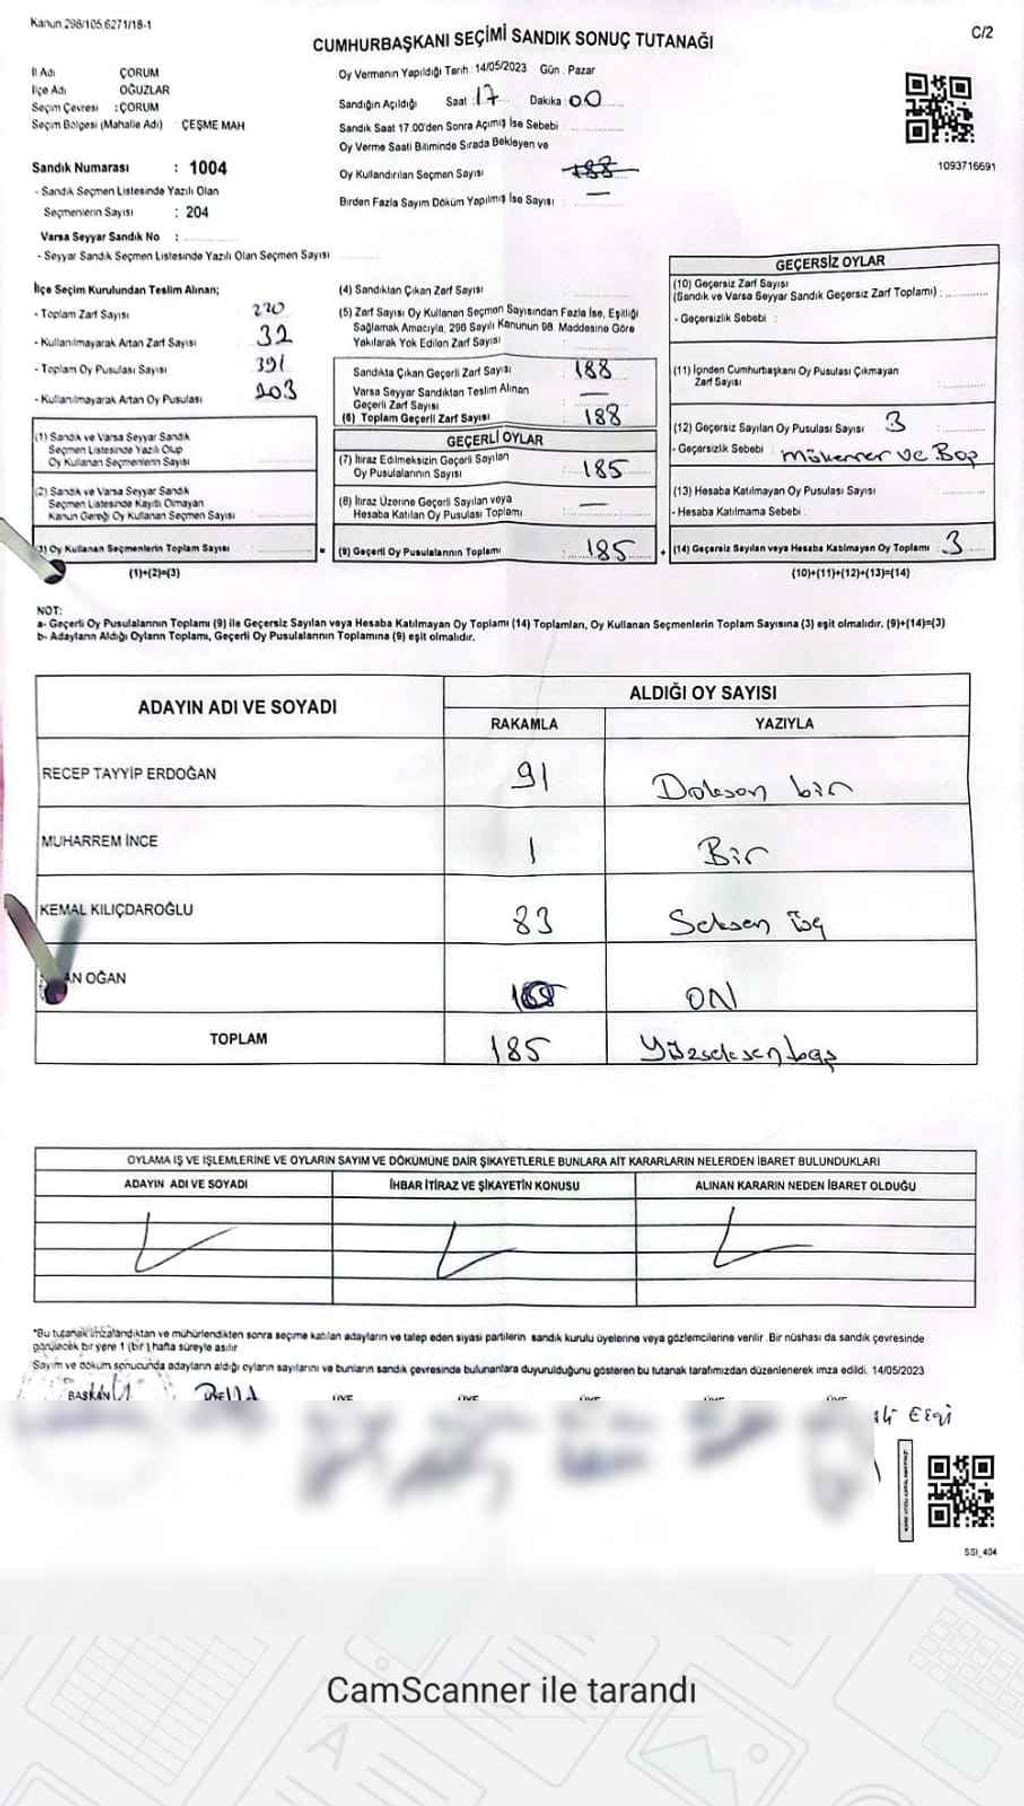 Kanun 298/105.6271/18-1
C/2
CUMHURBAŞKANI SEÇİMİ SANDIK SONUÇ TUTANAĞI
İl Adı ÇORUM
İlçe Adı OĞUZLAR
Seçim Çevresi : ÇORUM
Seçim Bölgesi (Mahalle Adı) ÇEŞME MAH
Sandık Numarası : 1004
- Sandık Seçmen Listesinde Yazılı Olan
Seçmenlerin Sayısı : 204
Varsa Seyyar Sandık No :
- Seyyar Sandık Seçmen Listesinde Yazılı Olan Seçmen Sayısı
Oy Vermenin Yapıldığı Tarih : 14/05/2023 Gün : Pazar
Sandığın Açıldığı Saat : 17 Dakika : 00
Sandık Saat 17.00'den Sonra Açımış İse Sebebi
Oy Verme Saati Bitiminde Sırada Bekleyen ve
Oy Kullandırılan Seçmen Sayısı 188
Birden Fazla Sayım Döküm Yapılmış İse Sayısı : —
1093716691
İlçe Seçim Kurulundan Teslim Alınan;
- Toplam Zarf Sayısı 220
- Kullanılmayarak Artan Zarf Sayısı 32
- Toplam Oy Pusulası Sayısı 391
- Kullanılmayarak Artan Oy Pusulası 203
(1) Sandık ve Varsa Seyyar Sandık
Seçmen Listesinde Yazılı Olup
Oy Kullanan Seçmenlerin Sayısı
(2) Sandık ve Varsa Seyyar Sandık
Seçmen Listesinde Kayıtlı Olmayan
Kanun Gereği Oy Kullanan Seçmen Sayısı
(3) Oy Kullanan Seçmenlerin Toplam Sayısı =
(1)+(2)=(3)
(4) Sandıktan Çıkan Zarf Sayısı
(5) Zarf Sayısı Oy Kullanan Seçmen Sayısından Fazla İse, Eşitliği
Sağlamak Amacıyla, 298 Sayılı Kanunun 98. Maddesine Göre
Yakılarak Yok Edilen Zarf Sayısı
Sandıkta Çıkan Geçerli Zarf Sayısı : 188
Varsa Seyyar Sandıktan Teslim Alınan
Geçerli Zarf Sayısı : —
(6) Toplam Geçerli Zarf Sayısı : 188
GEÇERLİ OYLAR
(7) İtiraz Edilmeksizin Geçerli Sayılan
Oy Pusulalarının Sayısı : 185
(8) İtiraz Üzerine Geçerli Sayılan veya
Hesaba Katılan Oy Pusulası Toplamı : —
(9) Geçerli Oy Pusulalarının Toplamı : 185 +
GEÇERSİZ OYLAR
(10) Geçersiz Zarf Sayısı
(Sandık ve Varsa Seyyar Sandık Geçersiz Zarf Toplamı) :
- Geçersizlik Sebebi :
(11) İçinden Cumhurbaşkanı Oy Pusulası Çıkmayan
Zarf Sayısı
(12) Geçersiz Sayılan Oy Pusulası Sayısı 3
- Geçersizlik Sebebi Mükerrer ve Boş
(13) Hesaba Katılmayan Oy Pusulası Sayısı
- Hesaba Katılmama Sebebi :
(14) Geçersiz Sayılan veya Hesaba Katılmayan Oy Toplamı : 3
(10)+(11)+(12)+(13)=(14)
NOT:
a- Geçerli Oy Pusulalarının Toplamı (9) ile Geçersiz Sayılan veya Hesaba Katılmayan Oy Toplamı (14) Toplamları, Oy Kullanan Seçmenlerin Toplam Sayısına (3) eşit olmalıdır. (9)+(14)=(3)
b- Adayların Aldığı Oyların Toplamı, Geçerli Oy Pusulalarının Toplamına (9) eşit olmalıdır.
ADAYIN ADI VE SOYADI
ALDIĞI OY SAYISI
RAKAMLA YAZIYLA
RECEP TAYYİP ERDOĞAN 91 Doksan bir
MUHARREM İNCE 1 Bir
KEMAL KILIÇDAROĞLU 83 Seksen üç
AN OĞAN ON
TOPLAM 185 Yüzseksenbeş
OYLAMA İŞ VE İŞLEMLERİNE VE OYLARIN SAYIM VE DÖKÜMÜNE DAİR ŞİKAYETLERLE BUNLARA AİT KARARLARIN NELERDEN İBARET BULUNDUKLARI
ADAYIN ADI VE SOYADI İHBAR İTİRAZ VE ŞİKAYETİN KONUSU ALINAN KARARIN NEDEN İBARET OLDUĞU
*Bu tutanak imzalandıktan ve mühürlendikten sonra seçime katılan adayların ve talep eden siyasi partilerin sandık kurulu üyelerine veya gözlemcilerine verilir. Bir nüshası da sandık çevresinde
görülecek bir yere 1 (bir) hafta süreyle asılır
Sayım ve döküm sonucunda adayların aldığı oyların sayılarını ve bunların sandık çevresinde bulunanlara duyurulduğunu gösteren bu tutanak tarafımızdan düzenlenerek imza edildi. 14/05/2023
BAŞKAN
SSI_404
CamScanner ile tarandı